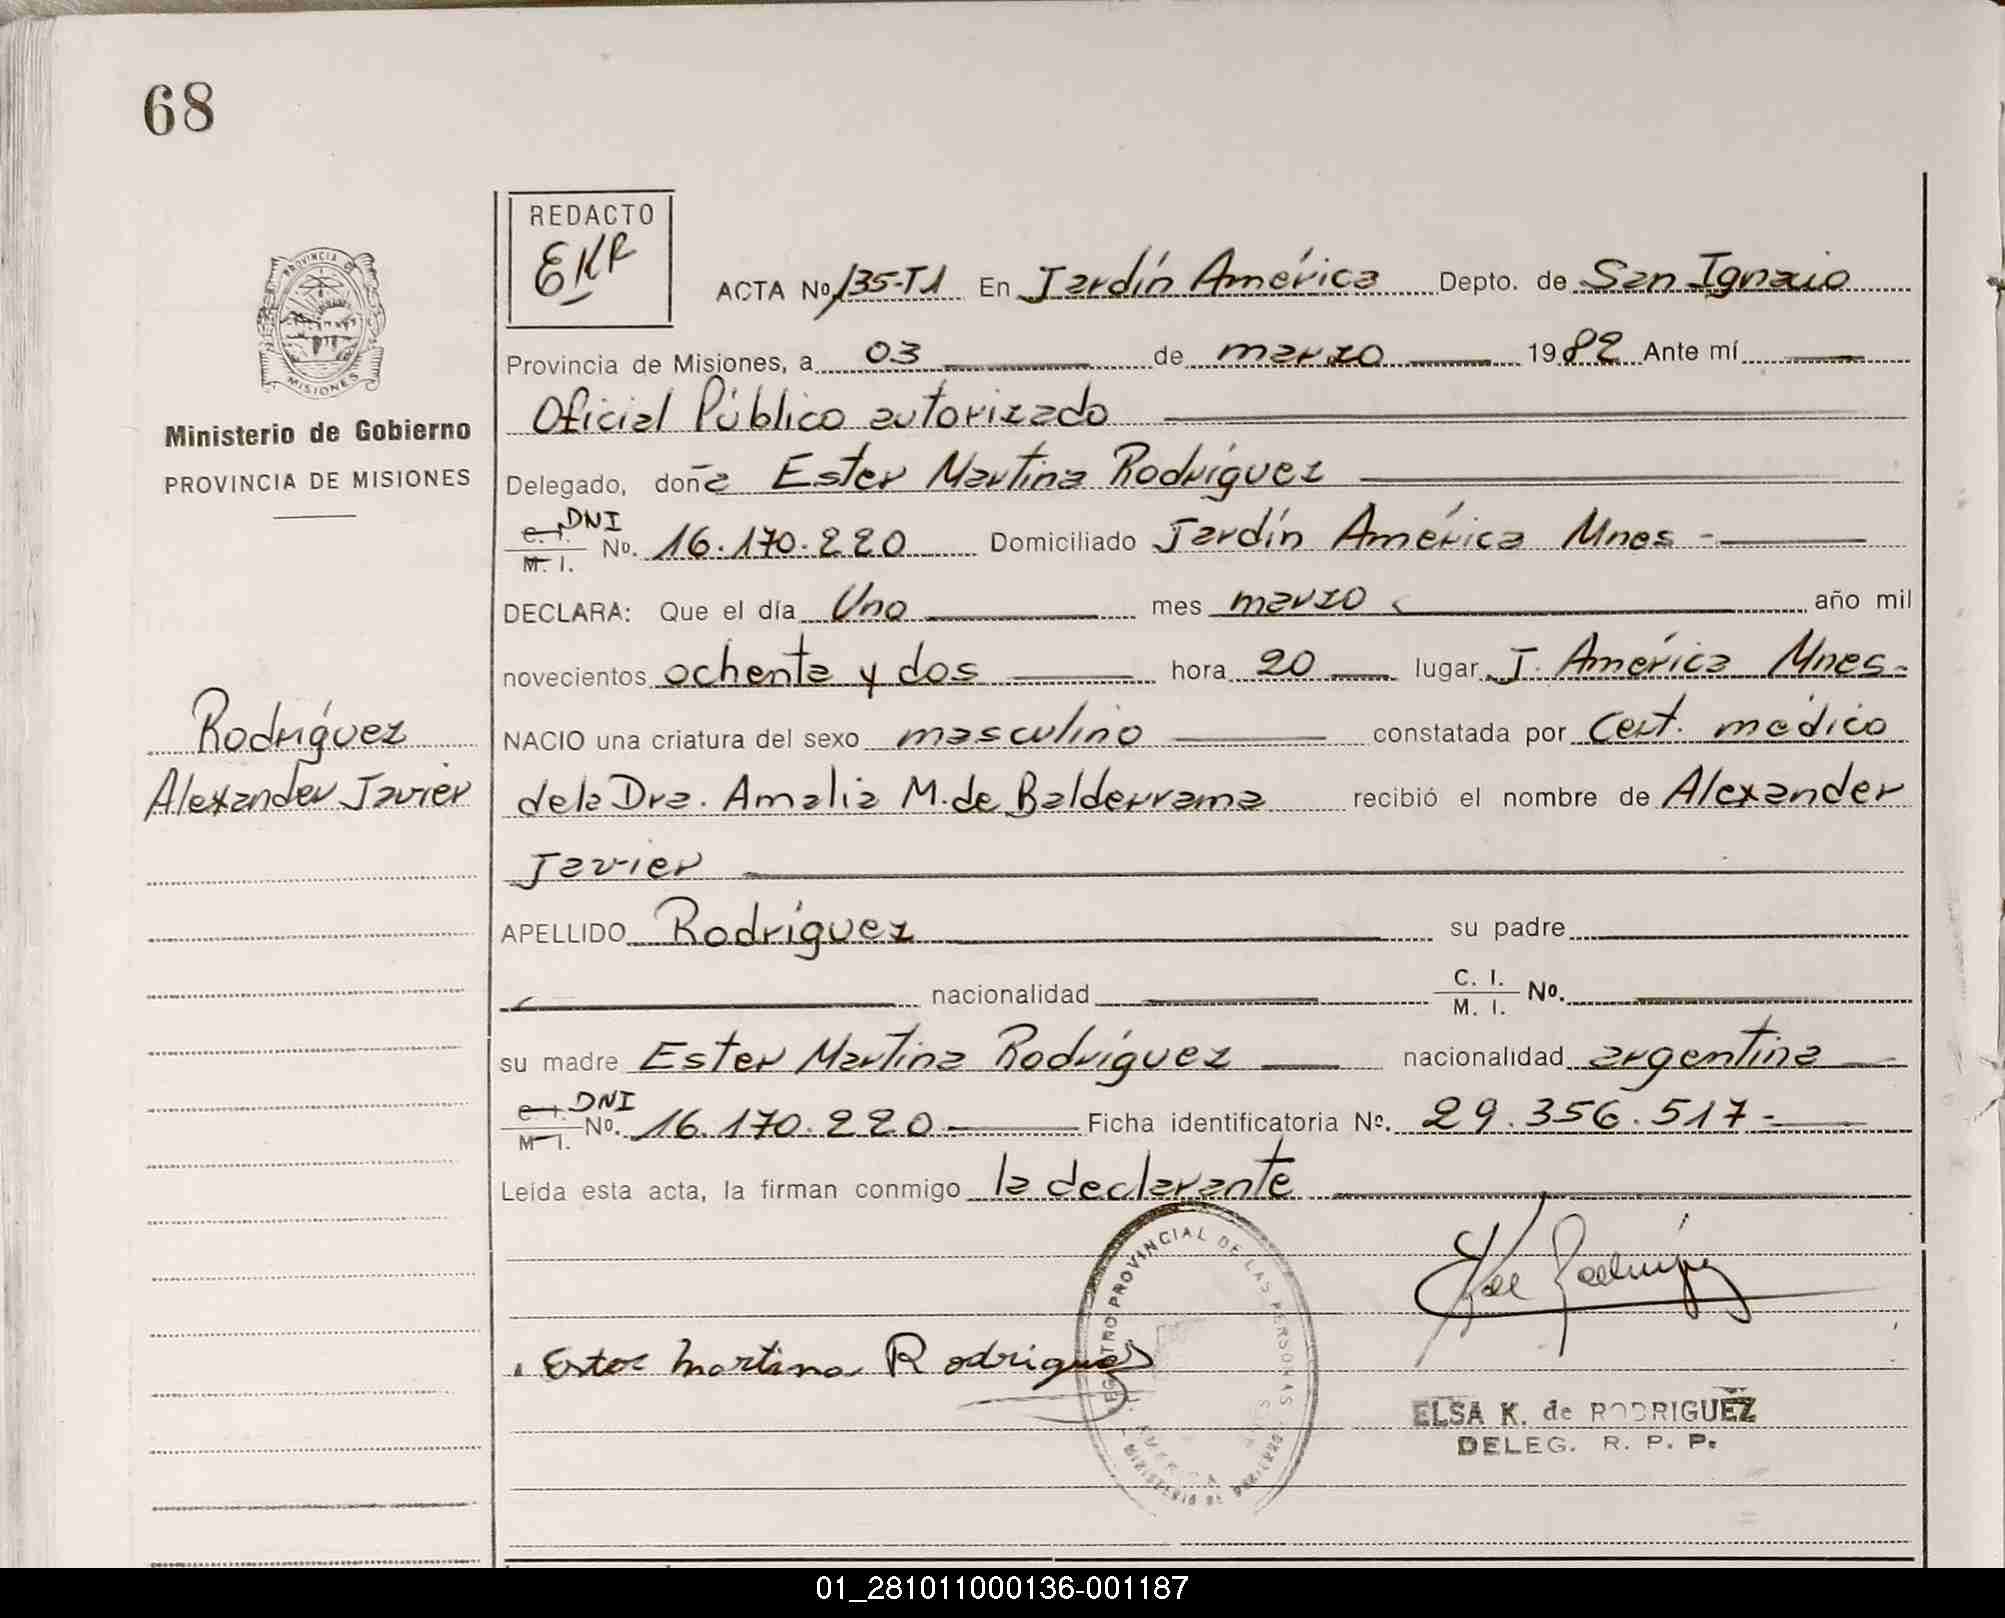 68
REDACTO
EKR
PROVINCIA DE
MISIONES
Ministerio de Gobierno
PROVINCIA DE MISIONES
ACTA Nº 135-T1 En Jardín América Depto. de San Ignacio
Provincia de Misiones, a 03 de marzo 1982 Ante mí
Oficial Público autorizado
Delegado, doña Ester Martina Rodríguez
C. I. DNI
M. I. Nº. 16.170.220 Domiciliado Jardín América Mnes -
DECLARA: Que el día Uno mes marzo año mil
novecientos ochenta y dos hora 20 lugar J. América Mnes-
Rodríguez
NACIO una criatura del sexo masculino constatada por Cert. médico
Alexander Javier
dela Dra. Amalia M. de Balderrama recibió el nombre de Alexander
Javier
APELLIDO Rodríguez su padre
nacionalidad C. I. M. I. Nº.
su madre Ester Martina Rodríguez nacionalidad argentina
C. I. DNI
M. I. Nº. 16.170.220 Ficha identificatoria Nº. 29.356.517-
Leída esta acta, la firman conmigo la declarante
REGISTRO PROVINCIAL DE LAS PERSONAS
Ester Martina Rodrigues
ELSA K. de RODRIGUEZ
DELEG. R. P. P.
01_281011000136-001187